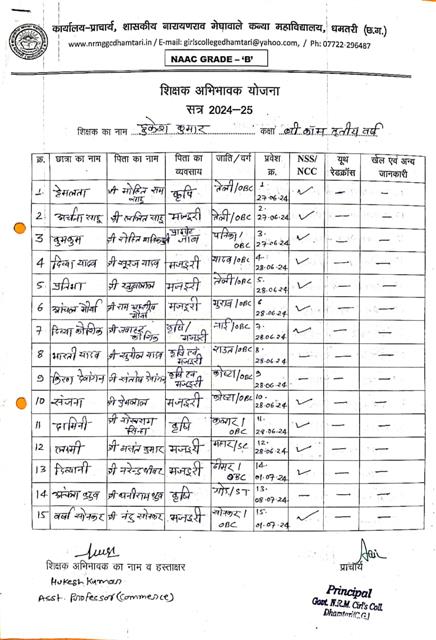 कार्यालय-प्राचार्य, शासकीय नारायणराव मेघावाले कन्या महाविद्यालय, धमतरी (छ.ग.)
www.nrmggcdhamtari.in / E-mail: girlscollegedhamtari@yahoo.com, / Ph: 07722-296487
NAAC GRADE – 'B'
शिक्षक अभिभावक योजना
सत्र 2024–25
शिक्षक का नाम हुकेश कुमार कक्षा बी.कॉम तृतीय वर्ष
क्र. छात्रा का नाम पिता का नाम पिता का व्यवसाय जाति/वर्ग प्रवेश क्र. NSS/NCC यूथ रेडक्रॉस खेल एवं अन्य जानकारी
1 हेमलता श्री मोहित राम साहू कृषि तेली/OBC 1. 27-06-24 ✓ — —
2 अर्चना साहू श्री साहू मजदूरी तेली/OBC 2. 27-06-24 ✓ — —
3 कुमकुम श्री जॉब /OBC 3. 27-06-24 ✓ — —
4 दिव्या यादव श्री सूरज यादव मजदूरी यादव/OBC 4. 28-06-24 ✓ — —
5 प्रतिभा श्री मजदूरी तेली/OBC 5. 28-06-24 ✓ — —
6 आंचल मौर्य श्री राम मौर्य मजदूरी /OBC 6 28-06-24 ✓ — —
7 दिव्या कौशिक श्री कौशिक कृषि/मजदूरी नाई/OBC 7. 28-06-24 ✓ — —
8 भारती यादव श्री सुशील यादव कृषि एवं मजदूरी राउत/OBC 8. 28-06-24 — — —
9 किरण देवांगन श्री संतोष देवांगन कृषि एवं मजदूरी कोष्टा/OBC 9 28-06-24 — — —
10 संजना श्री मजदूरी कोष्टा/OBC 10. 28-06-24 ✓ — —
11 दामिनी श्री सिन्हा कृषि कलार/OBC 11. 28-06-24 ✓ — —
12 लक्ष्मी श्री बसंत कुमार मजदूरी महार/SC 12. 28-06-24 ✓ — —
13 श्री नरेन्द्र धीवर मजदूरी ढीमर/OBC 14. 01-07-24 ✓ — —
14 ध्रुव श्री धनीराम ध्रुव कृषि गोंड/ST 13. 08-07-24 — — —
15 वर्षा सोनकर श्री नंदू सोनकर मजदूरी सोनकर/OBC 15. 01-07-24 ✓ — —
शिक्षक अभिभावक का नाम व हस्ताक्षर
प्राचार्य
Hukesh Kumar
Asst. Professor (Commerce)
Principal
Govt. N.R.M. Girl's Coll.
Dhamtari (C.G.)